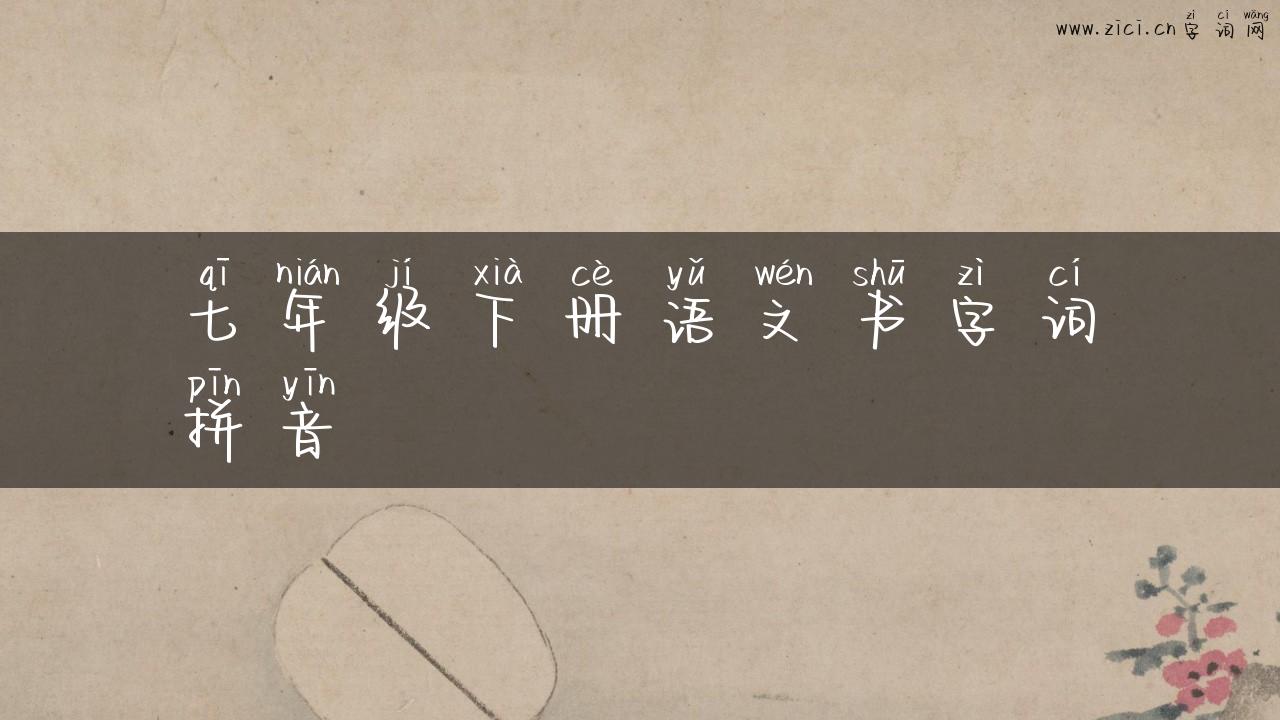 zì cí wǎng
www.zīcī.cn 字词网
qī nián jí xià cè yǔ wén shū zì cí
七年级下册语文书字词
pīn yīn
拼音